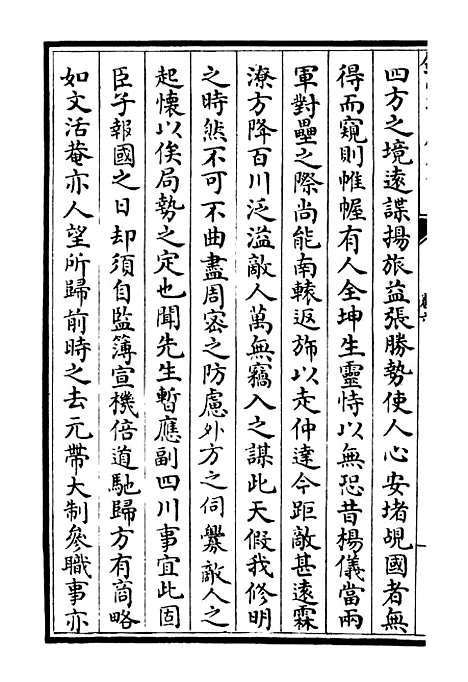 四方之境遠諜揚旅益張勝勢使人心安堵覘國者無
得而窺則帷幄有人全坤生靈恃以無恐昔楊儀當兩
軍對壘之際尚能南轅返斾以走仲達今距敵甚遠霖
潦方降百川泛溢敵人萬無竊入之謀此天假我修明
之時然不可不曲盡周宻之防慮外方之伺釁敵人之
起懷以俟局勢之定也聞先生暫應副四川事宜此固
臣子報國之日却須自監簿宣機倍道馳歸方有商略
如文活菴亦人望所歸前時之去元帶大制參職事亦